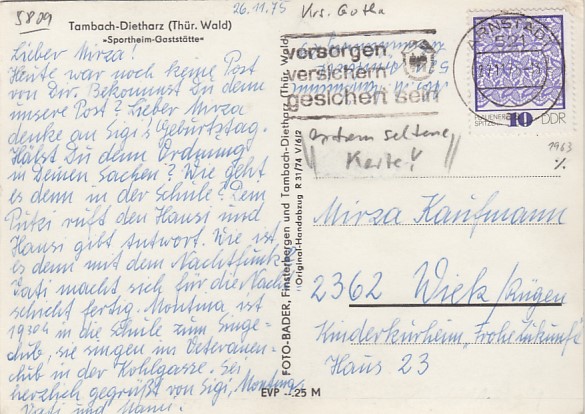 5809
26.11.75
Krs. Gotha
Tambach-Dietharz (Thür. Wald)
»Sportheim-Gaststätte«
Lieber Mirza!
Heute war noch keine Post
von Dir. Bekommst Du denn
unsere Post? Lieber Mirza
denke an Sigi's Geburtstag.
Hälst Du denn Ordnung
in Deinen Sachen? Wie geht
es denn in der Schule? Dem
Putzi ruft den Hansi und
Hansi gibt Antwort. Wie ist
es denn mit dem Nachtfunk?
Vati macht sich für die Nacht
schicht fertig. Montma ist
1930 h in die Schule zum Singe-
club, sie singen im Veteranen-
club in der Kohlgasse. Sei
herzlich gegrüßt von Sigi, Montma,
Vati und Mami.
FOTO-BADER, Finsterbergen und Tambach-Dietharz (Thür. Wald)
Original-Handabzug R 31/74 V/6/2
EVP -.25 M
versorgen
versichern
gesichert sein
ARNSTADT
521
PLAUENER
SPITZE
10
DDR
extrem seltene
Karte!
1963
Mirza Kaufmann
2362 Wiek/Rügen
Kinderkurheim „Frohe Zukunft"
Haus 23